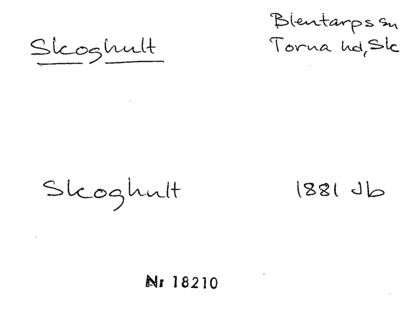 Skoghult
Blentarps sn
Torna hd, Sk
Skoghult
1881 Jb
Nr 18210